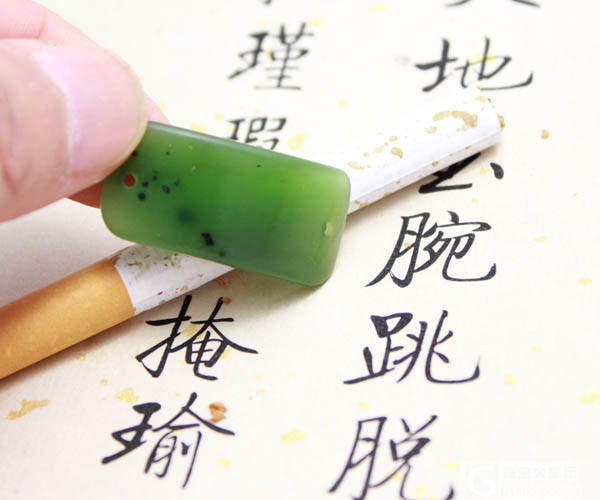 地腕跳脱
瑾瑕掩瑜